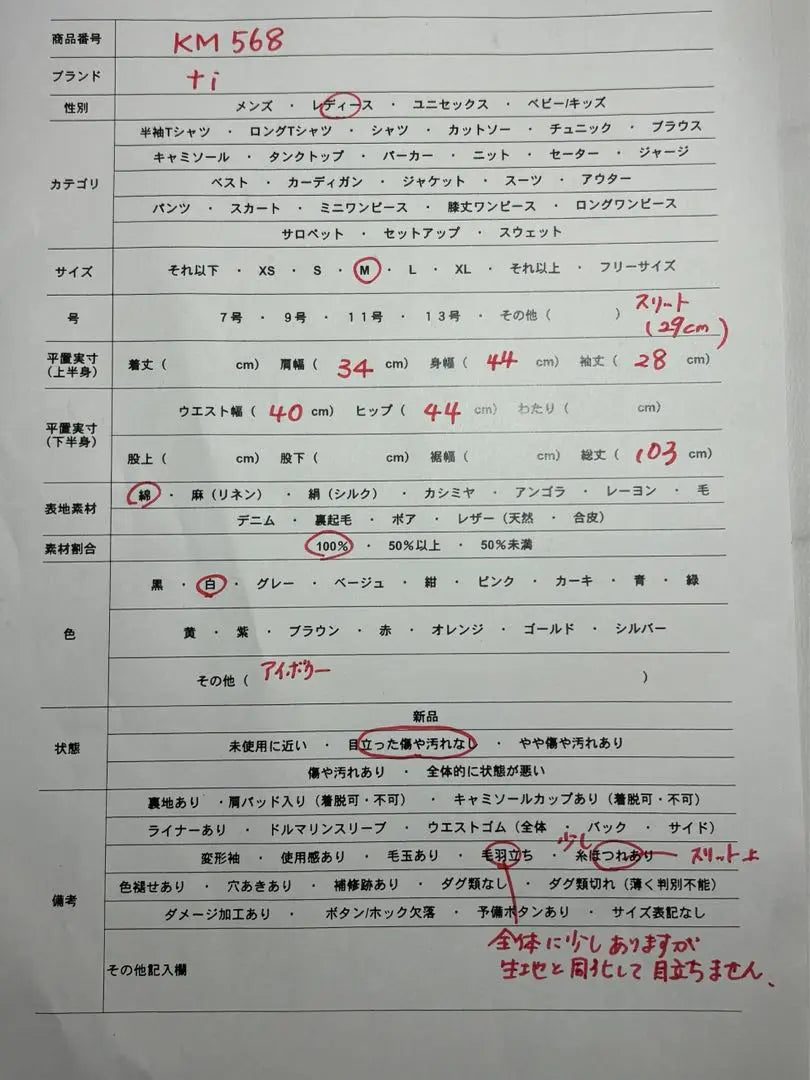 商品番号 KM 568
ブランド ti
性別 メンズ ・ レディース ・ ユニセックス ・ ベビー/キッズ
カテゴリ
半袖Tシャツ ・ ロングTシャツ ・ シャツ ・ カットソー ・ チュニック ・ ブラウス
キャミソール ・ タンクトップ ・ パーカー ・ ニット ・ セーター ・ ジャージ
ベスト ・ カーディガン ・ ジャケット ・ スーツ ・ アウター
パンツ ・ スカート ・ ミニワンピース ・ 膝丈ワンピース ・ ロングワンピース
サロペット ・ セットアップ ・ スウェット
サイズ それ以下 ・ XS ・ S ・ M ・ L ・ XL ・ それ以上 ・ フリーサイズ
号 7号 ・ 9号 ・ 11号 ・ 13号 ・ その他（ ）
スリット
(29cm)
平置実寸
（上半身）
着丈（ cm） 肩幅（ 34 cm） 身幅（ 44 cm） 袖丈（ 28 cm）
平置実寸
（下半身）
ウエスト幅（ 40 cm） ヒップ（ 44 cm） わたり（ cm）
股上（ cm） 股下（ cm） 裾幅（ cm） 総丈（ 103 cm）
表地素材
綿 ・ 麻（リネン） ・ 絹（シルク） ・ カシミヤ ・ アンゴラ ・ レーヨン ・ 毛
デニム ・ 裏起毛 ・ ボア ・ レザー（天然 ・ 合皮）
素材割合 100% ・ 50%以上 ・ 50%未満
色
黒 ・ 白 ・ グレー ・ ベージュ ・ 紺 ・ ピンク ・ カーキ ・ 青 ・ 緑
黄 ・ 紫 ・ ブラウン ・ 赤 ・ オレンジ ・ ゴールド ・ シルバー
その他（ アイボリー ）
状態
新品
未使用に近い ・ 目立った傷や汚れなし ・ やや傷や汚れあり
傷や汚れあり ・ 全体的に状態が悪い
備考
裏地あり ・肩パッド入り（着脱可・不可） ・ キャミソールカップあり（着脱可・不可）
ライナーあり ・ ドルマリンスリーブ ・ ウエストゴム（全体 ・ バック ・ サイド）
少し
変形袖 ・ 使用感あり ・ 毛玉あり ・ 毛羽立ち ・ 糸ほつれあり スリット上
色褪せあり ・ 穴あきあり ・ 補修跡あり ・ ダグ類なし ・ ダグ類切れ（薄く判別不能）
ダメージ加工あり ・ ボタン/ホック欠落 ・ 予備ボタンあり ・ サイズ表記なし
全体に少しありますが
生地と同化して目立ちません、
その他記入欄